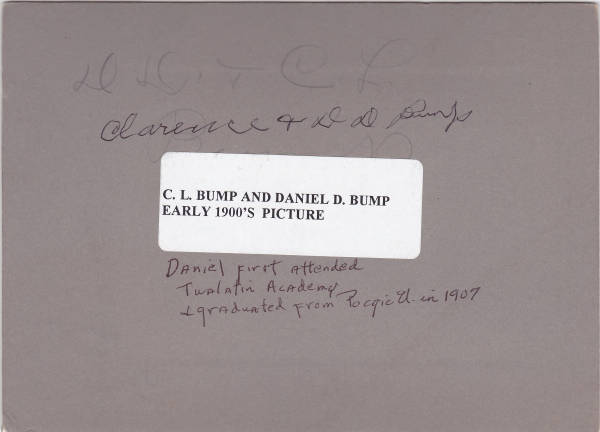 D D. + C L.
Clarence + D D Bump
Bump
C. L. BUMP AND DANIEL D. BUMP
EARLY 1900'S PICTURE
Daniel first attended
Tualatin Academy
& graduated from U. in 1907